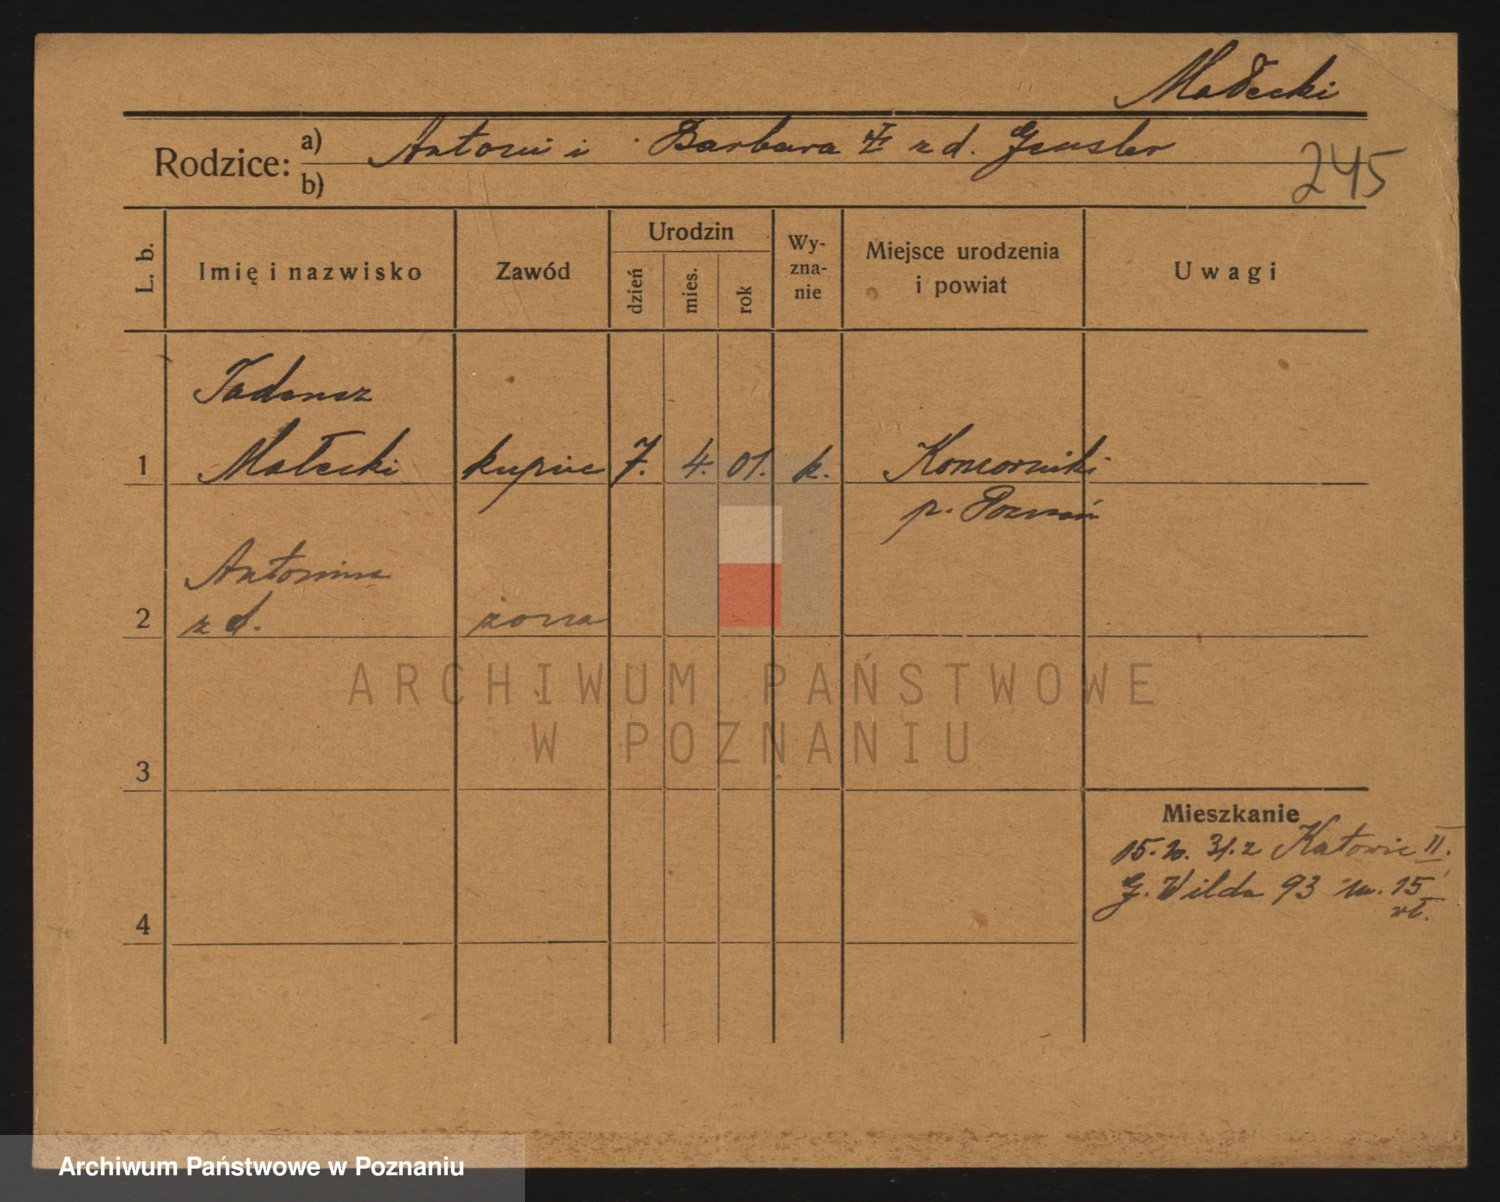 Małecki
Rodzice: a) Antoni i Barbara z d. Gensler
b)
245
L. b.
Imię i nazwisko
Zawód
Urodzin
dzień
mies.
rok
Wy-
zna-
nie
Miejsce urodzenia
i powiat
Uwagi
Tadeusz
1 Małecki kupiec 7. 4. 01. k. Komorniki
p. Poznań
Antonina
2 z d. żona
ARCHIWUM PAŃSTWOWE
W POZNANIU
3
Mieszkanie
15. 31.2 Katowic II.
G. Wilda 93 m. 15
4
Archiwum Państwowe w Poznaniu